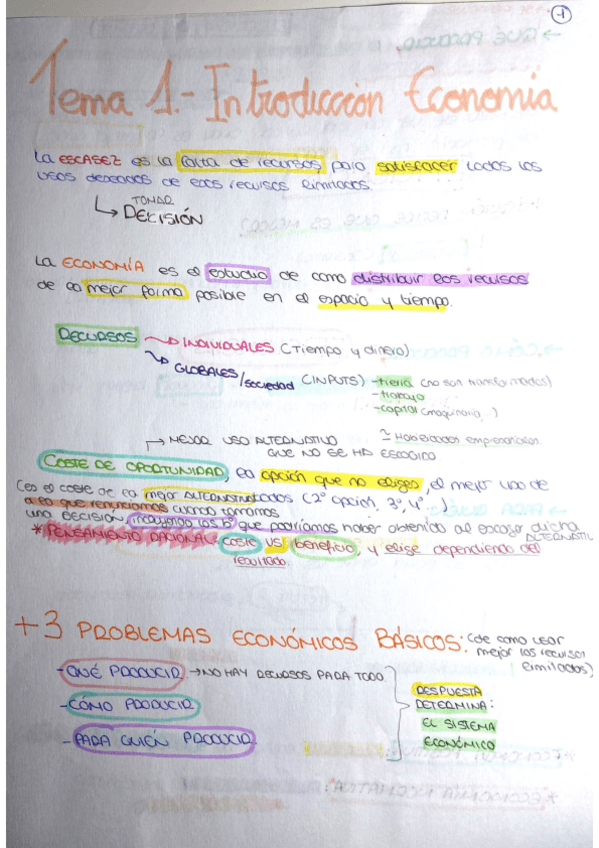 -1
Tema 1.- Introducción Economía
La ESCASEZ es la falta de recursos para satisfacer todos los
usos deseados de esos recursos limitados.
TOMAR
DECISIÓN
La ECONOMÍA es el estudio de como distribuir los recursos
de la mejor forma posible en el espacio y tiempo.
RECURSOS → INDIVIDUALES (Tiempo y dinero)
→ GLOBALES/sociedad (INPUTS) - tierra (no son transformados)
- trabajo
- capital (maquinaria,..)
≃ Habilidades empresariales
→ MEJOR USO ALTERNATIVO
QUE NO SE HA ESCOGIDO
COSTE DE OPORTUNIDAD, la opción que no eliges, el mejor uno de
(es el coste de la mejor ALTERNATIVA todos (2ª opción, 3ª, 4ª..)
a la que renunciamos cuando tomamos
una decisión, incluyendo los b° que podríamos haber obtenido al escoger dicha
ALTERNATIVA
*PENSAMIENTO RACIONAL: coste VS beneficio, y elige dependiendo del
resultado.
+ 3 PROBLEMAS ECONÓMICOS BÁSICOS: (de como usar
mejor los recursos
limitados)
- QUÉ PRODUCIR → NO HAY RECURSOS PARA TODO
- CÓMO PRODUCIR
- PARA QUIÉN PRODUCIR
RESPUESTA
DETERMINA:
EL SISTEMA
ECONÓMICO